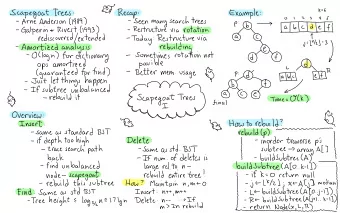 Scapegoat Trees:
- Arne Anderson (1989)
- Galperin + Rivest (1993)
rediscovered/extended
- Amortized analysis
- O(log n) for dictionary
ops amortized
(guaranteed for find)
- Just let things happen
- If subtree unbalanced
- rebuild it
Recap:
- Seen many search trees
- Restructure via rotation
- Today: Restructure via
rebuilding
- Sometimes rotation not
possible
- Better mem usage
Example:
k=6
a b c d e f
final
Time = O(k)
Scapegoat Trees
I
Overview:
Insert
- same as standard BST
- if depth too high
- trace search path
back
- find unbalanced
node - scapegoat
- rebuild this subtree
Find: Same as std BST
Delete
- Same as std. BST
- If num of deletes is
large rel. to n -
rebuild entire tree!
How? Maintain n, m ← 0
Insert: n++, m++
Delete: n--
How to rebuild?
rebuild(p)
- inorder traverse p's
subtree → array A[]
- buildSubtree(A)
buildSubtree(A[0..k-1])
- if k=0 return null
- return Node(x, L, R)